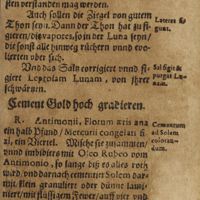 sten verstanden mag werden.
Auch sollen die Ziegel von gutem
Thon seyn. Dann der Thon hat zu fi-
gieren/die vapores, so in der Luna seyn/
die sonst alle hinweg rüchern vnnd evo-
lierten vber sich.
Lateres fi-
gunt.
Vnd das Saltz corrigiert vnnd fi-
giert Leprosam Lunam, von ihrer
schwärtzen.
Sal figit &
purgat Lu-
nam.
Cement Gold hoch gradieren.
R. Antimonii, Florum æris ana
ein halb Pfund / Mercurii congelati fi-
xi, ein Viertel. Mische sie zusammen/
vnnd imbibiers mit Oleo Rubeo vom
Antimonio, so lange biß es alles rot
ward/vnd darnach cementier Solem dar-
mit klein granuliert oder dünne lami-
niert/mit flüssigem Fewer/auff vier vnd
Cementum
ad Solem
coloran-
dum.